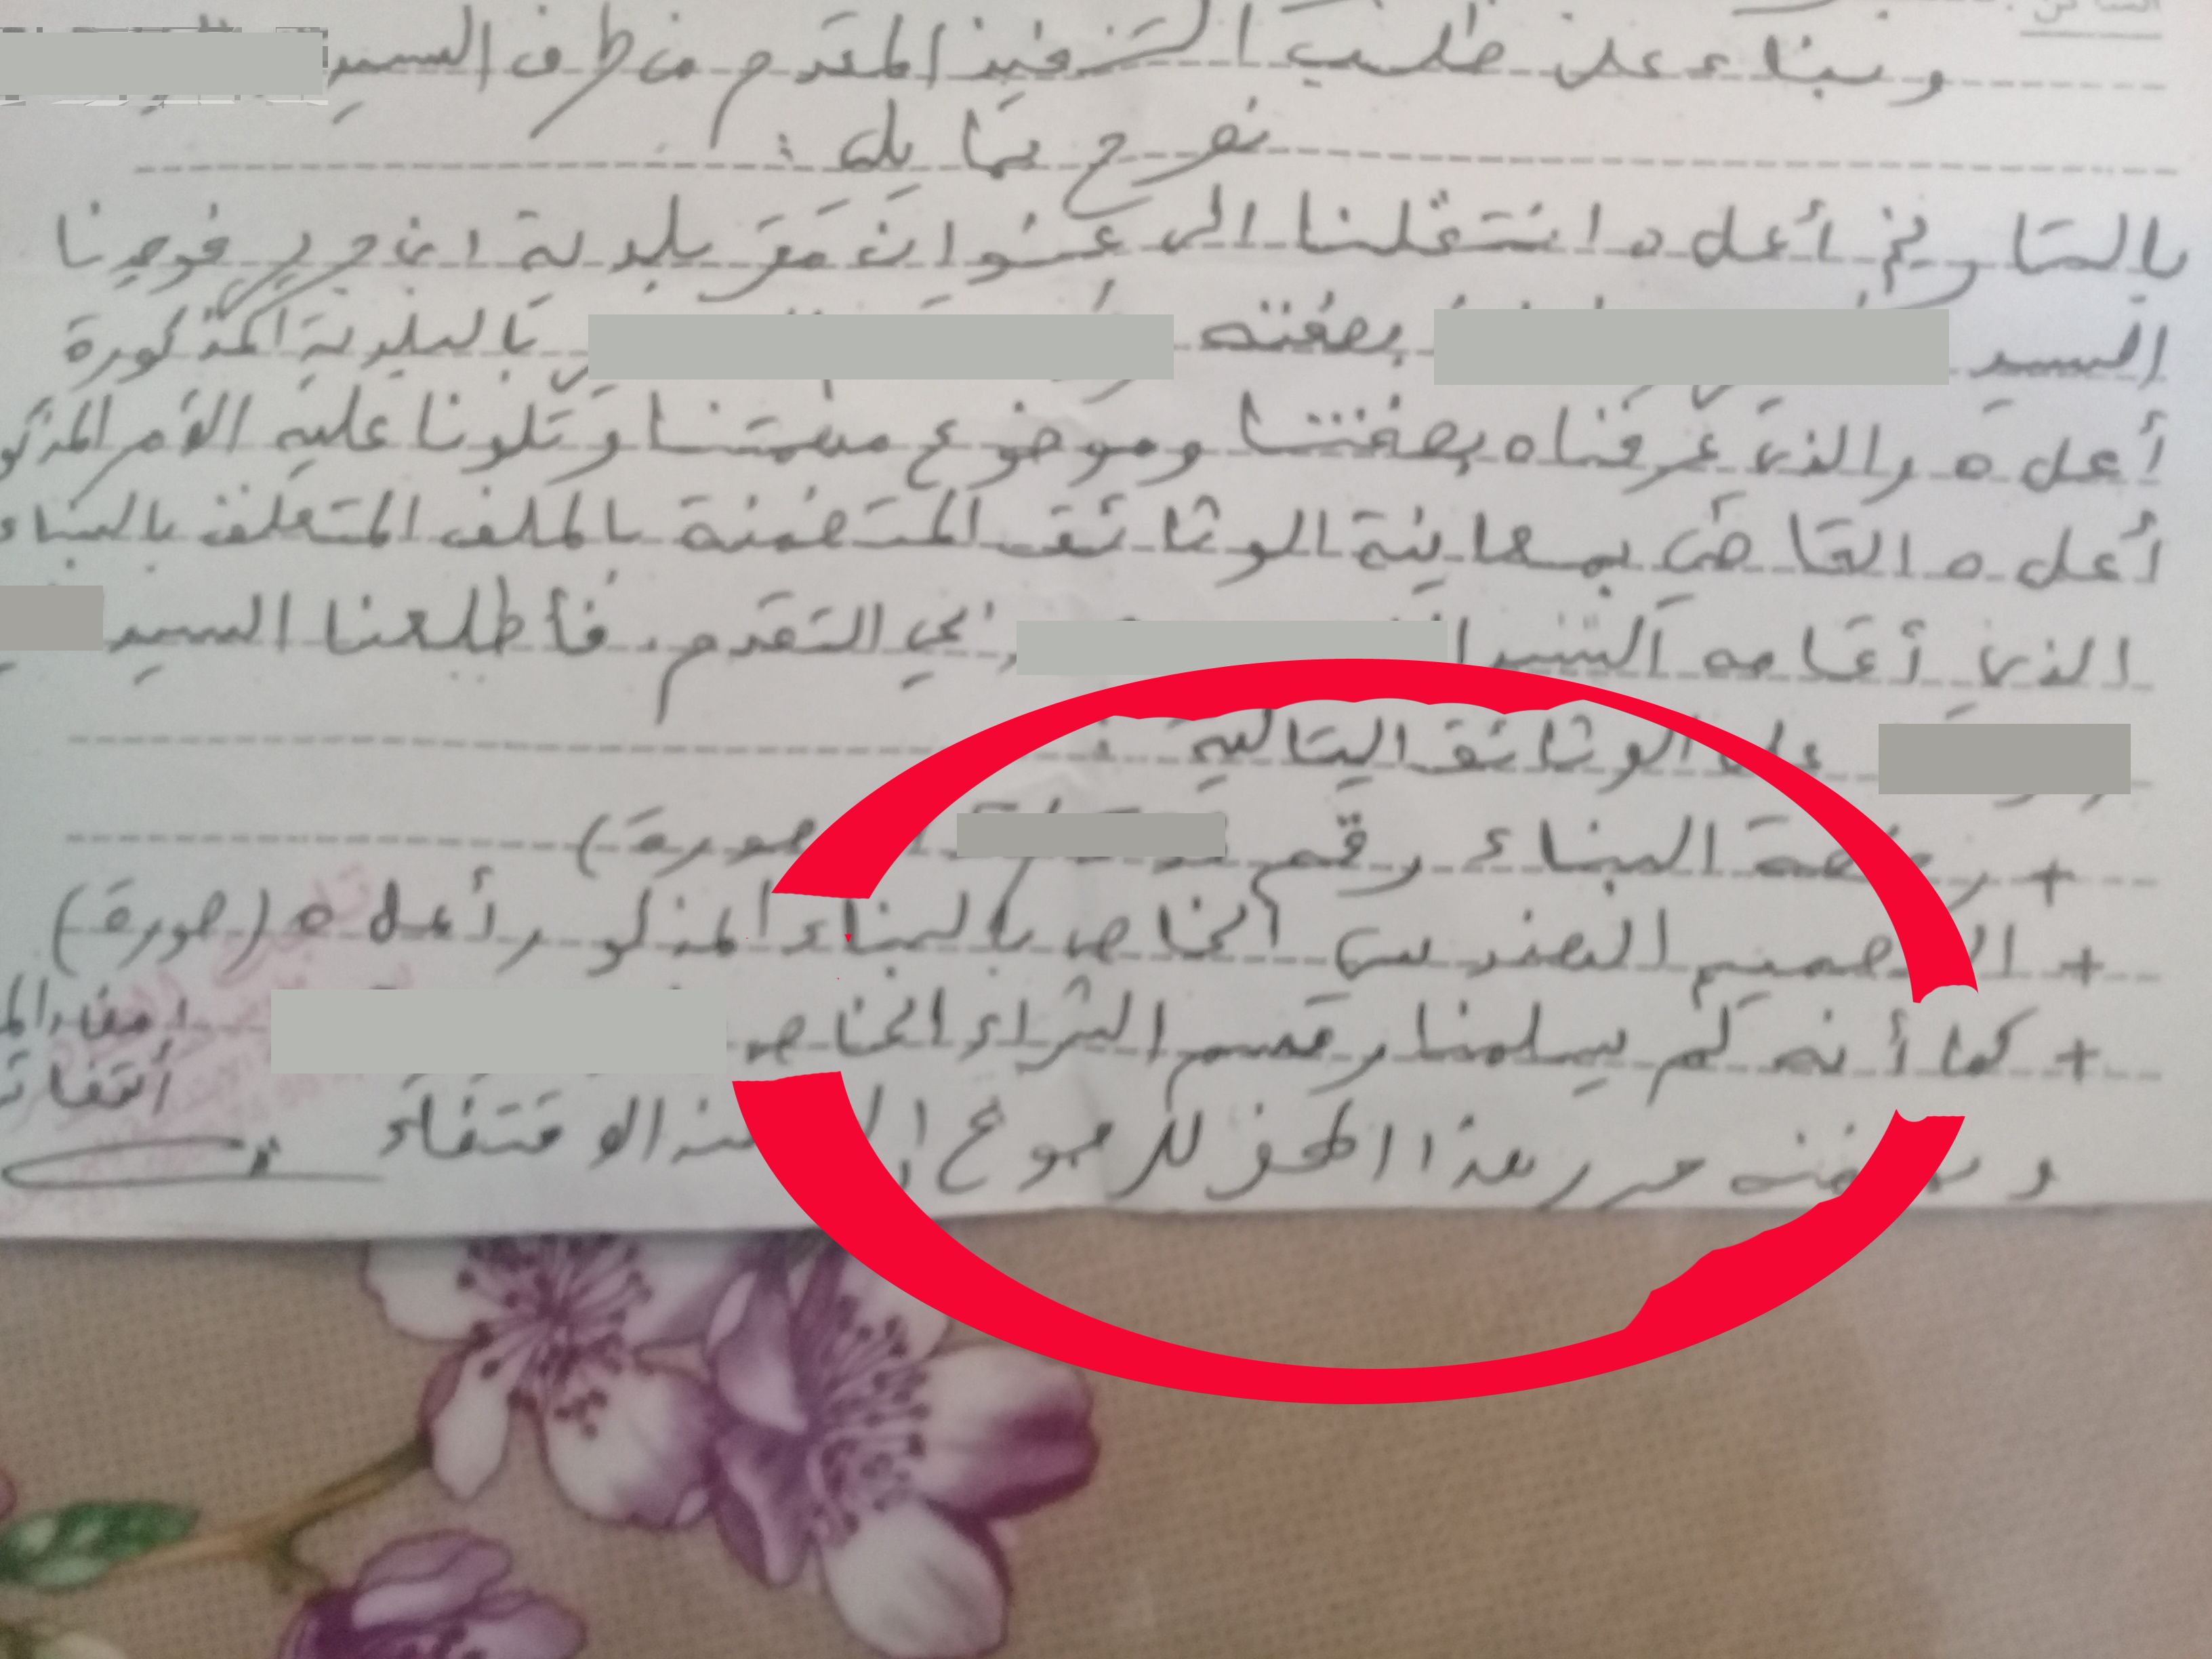 وبناء على طلب التنفيذ المقدم من طرف السيد
نصرح بما يلي :
بالتاريخ أعلاه انتقلنا الى عنوان مقر بلدية ابن جرير فوجدنا
السيد بصفته بالبلدية المذكورة
أعلاه والذي عرفناه بصفتنا وموضوع مهمتنا وتلونا عليه الأمر المذكو
أعلاه القاضي بمعاينة الوثائق المتضمنة بالملف المتعلق بالبناء
الذي أقامه السيد بحي التقدم، فأطلعنا السيد
على الوثائق التالية :
+ رخصة البناء رقم صورة)
+ التصميم الهندسي الخاص بالبناء المذكور أعلاه (صورة)
+ كما أنه لم يسلمنا رسم الشراء الخاص
امضاء الم
وبصفته حرر هذا المحضر للرجوع إليه عند الاقتضاء